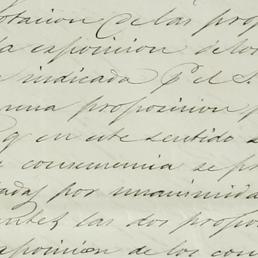 otacion de las prop
la exposicion de los
indicada pr el S
una proposicion p
q en este sentido s
consecuencia se pr
adas por unanimida
las dos propo
exposicion de los con